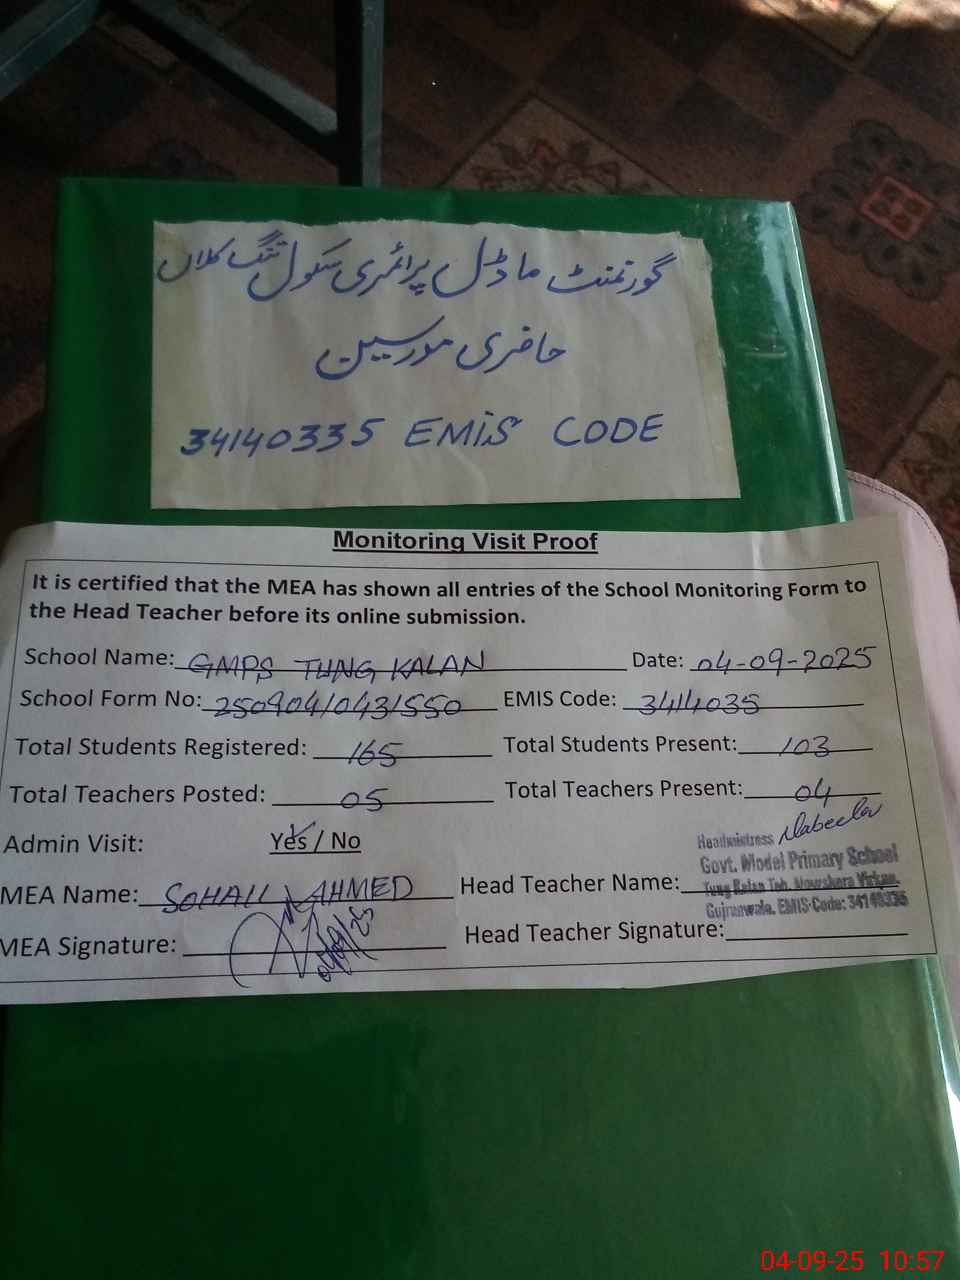 گورنمنٹ ماڈل پرائمری سکول تنگ کلاں
حاضری مدرسین
34140335 EMiS CODE
Monitoring Visit Proof
It is certified that the MEA has shown all entries of the School Monitoring Form to
the Head Teacher before its online submission.
School Name: GMPS TUNG KALAN Date: 04-09-2025
School Form No: 25090410431550 EMIS Code: 3414035
Total Students Registered: 165 Total Students Present: 103
Total Teachers Posted: 05 Total Teachers Present: 04
Admin Visit: Yes / No
Headmistress Nabeela
Govt. Model Primary School
Tung Kalan Teh. Nowshera Virkan.
Gujranwala. EMIS-Code: 34140335
MEA Name: SOHAIL AHMED Head Teacher Name:
MEA Signature: 04/09/25 Head Teacher Signature:
04-09-25 10:57